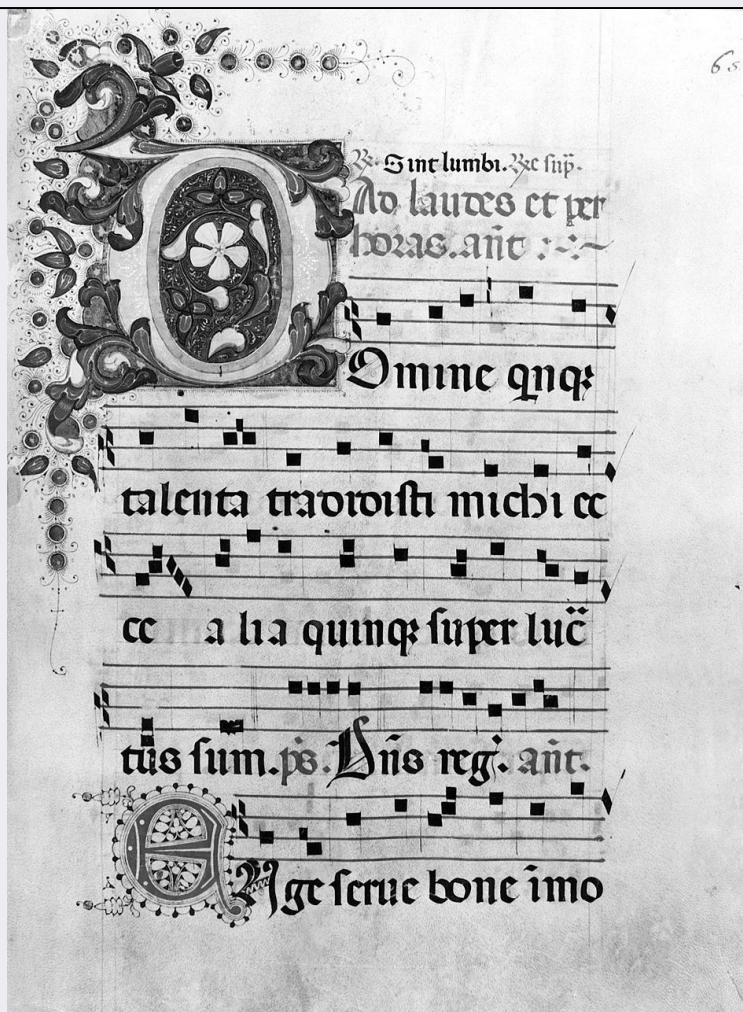 65
℟. Sint lumbi. Rc sup̄.
Ad laudes et per
horas. an̄t
Omine qnqꝫ
talenta tradidisti michi ec
ce alia quinqꝫ super luc̄
tus sum. ps. Dn̄s reg. an̄t.
Euge serue bone ī mo